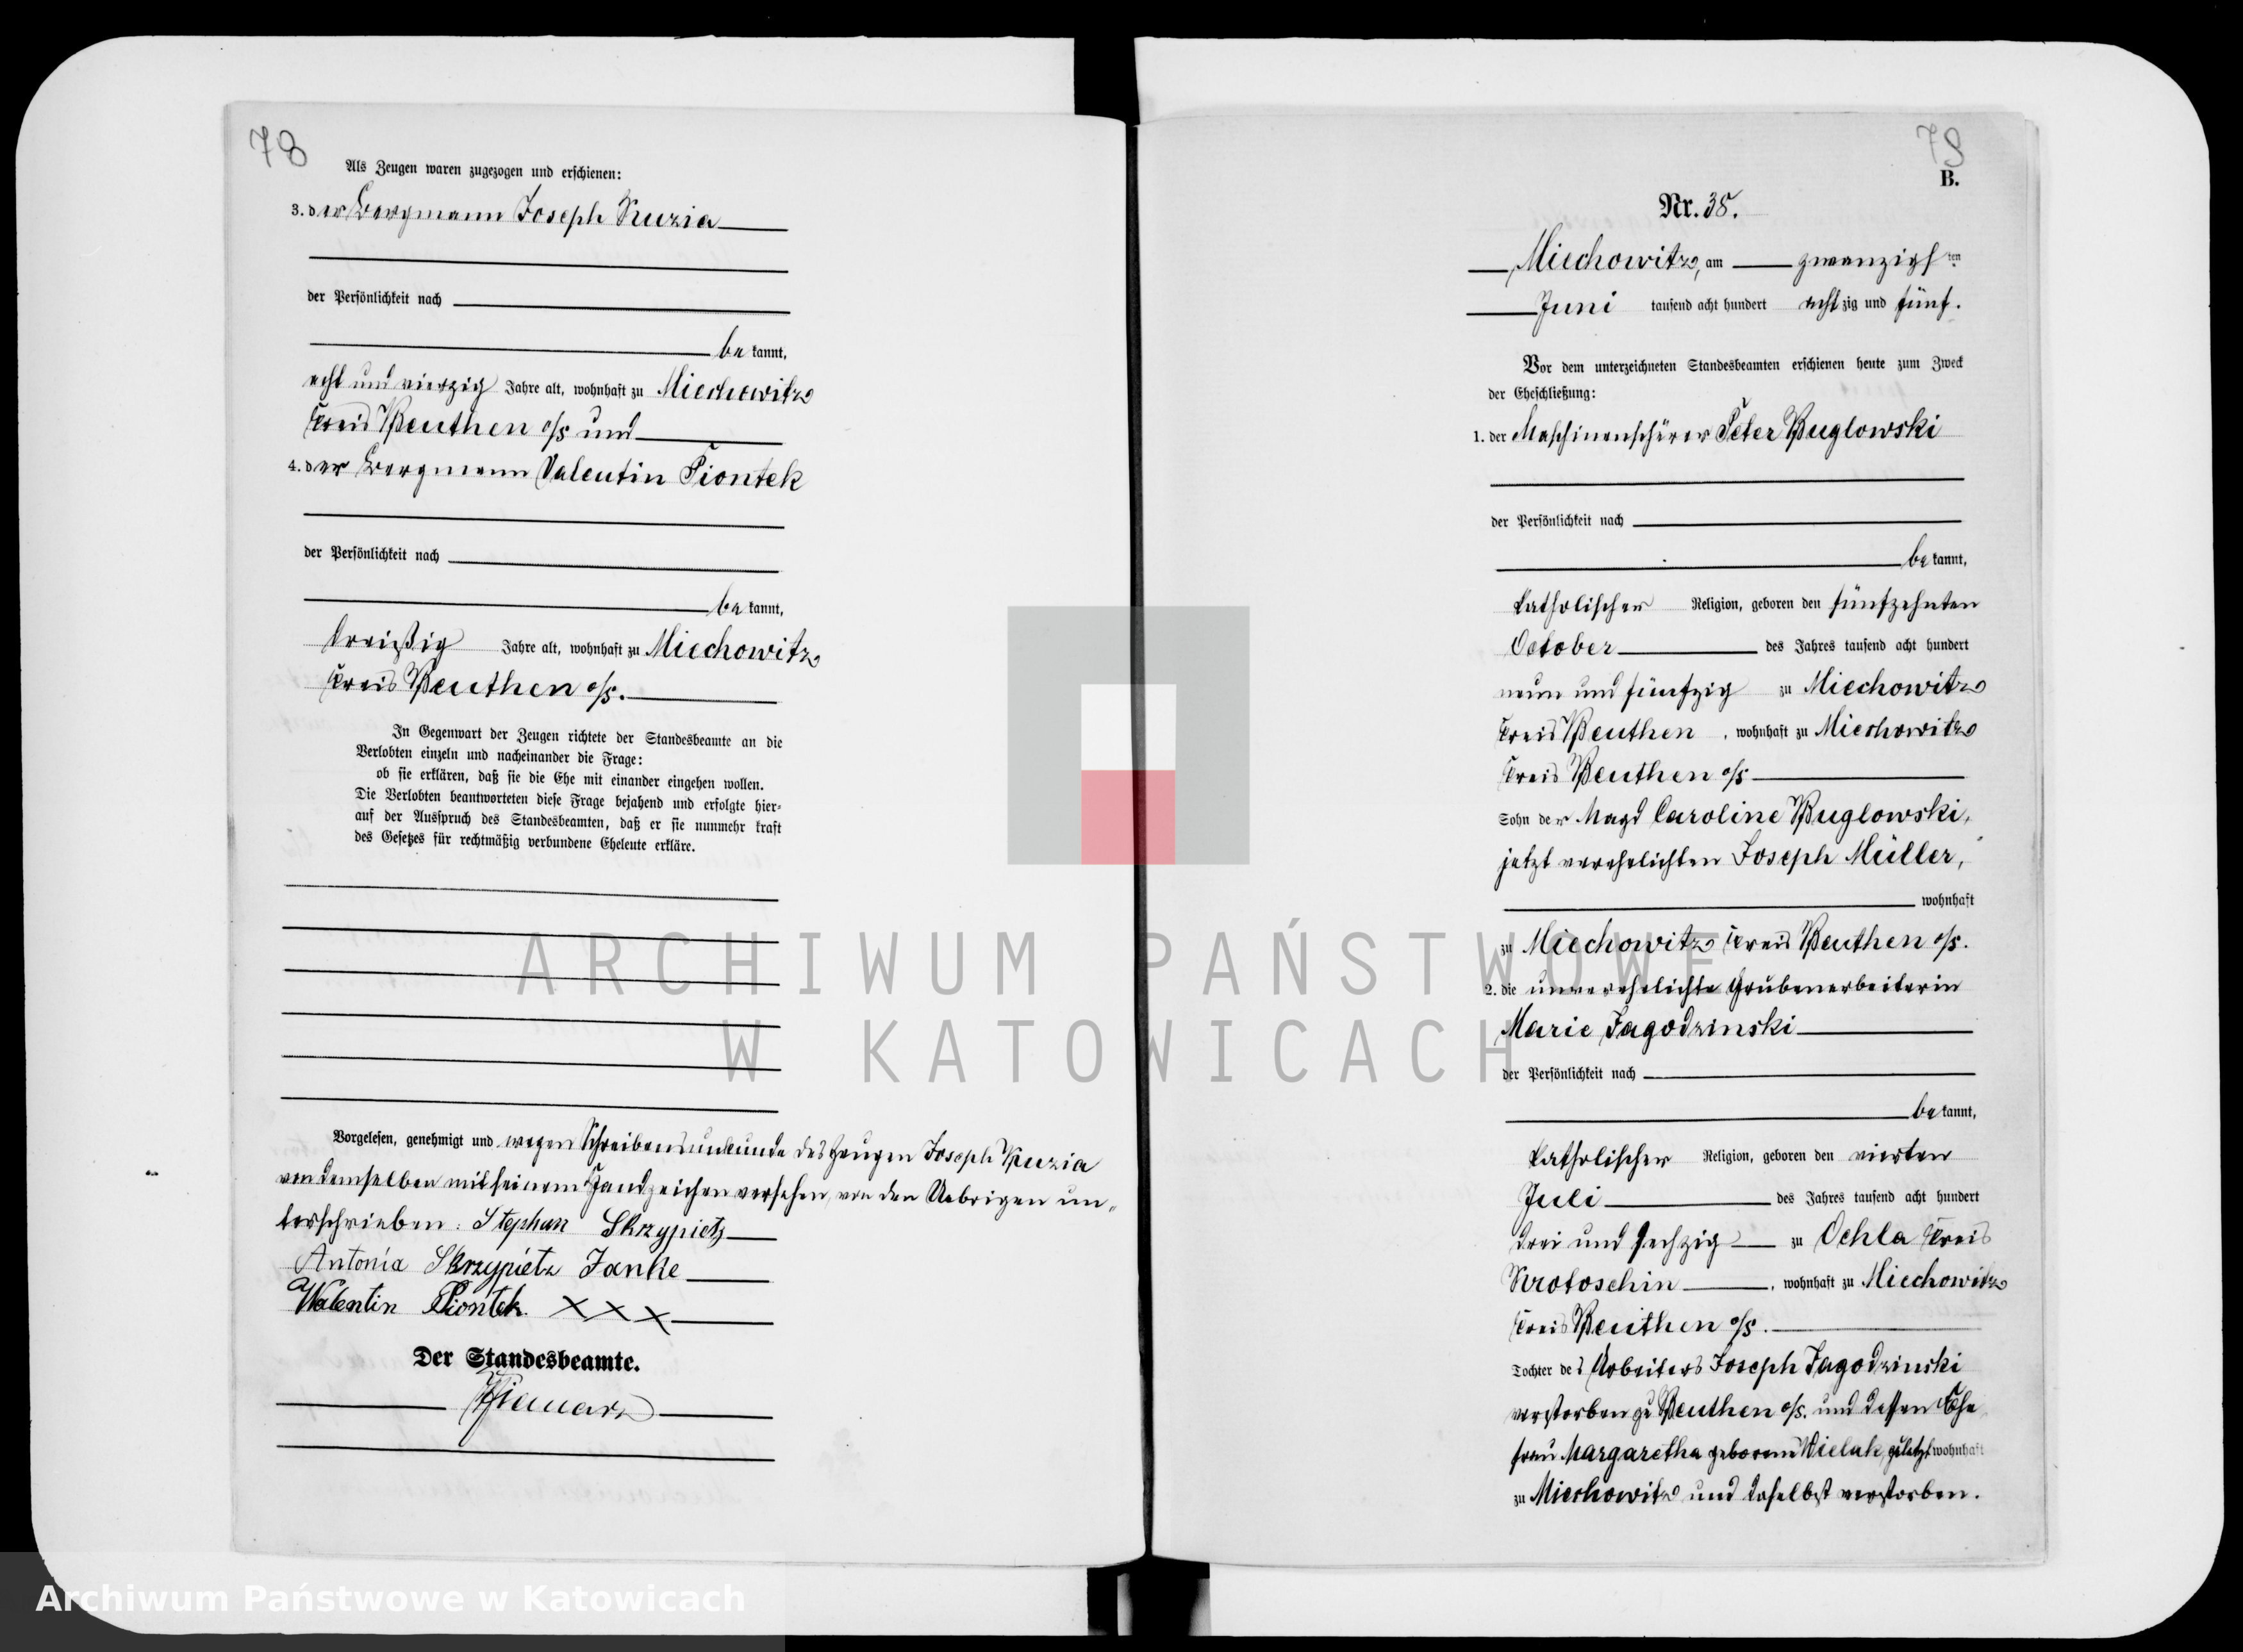 78
Als Zeugen waren zugezogen und erschienen:
3. der Bergmann Joseph Kuzia
der Persönlichkeit nach
bekannt,
acht und vierzig Jahre alt, wohnhaft zu Miechowitz
Kreis Beuthen o/s und
4. der Bergmann Valentin Piontek
der Persönlichkeit nach
bekannt,
dreißig Jahre alt, wohnhaft zu Miechowitz
Kreis Beuthen o/s.
In Gegenwart der Zeugen richtete der Standesbeamte an die
Verlobten einzeln und nacheinander die Frage:
ob sie erklären, daß sie die Ehe mit einander eingehen wollen.
Die Verlobten beantworteten diese Frage bejahend und erfolgte hier-
auf der Ausspruch des Standesbeamten, daß er sie nunmehr kraft
des Gesetzes für rechtmäßig verbundene Eheleute erkläre.
Vorgelesen, genehmigt und wegen Schreibensunkunde des Zeugen Joseph Kuzia
von demselben mit seinem Handzeichen versehen, von den Uebrigen un„
terschrieben: Stephan Skrzypietz
Antonia Skrzypietz Janke
Walentin Piontek. XXX
Der Standesbeamte.
79
B.
Nr. 38.
Miechowitz, am zwanzigsten
Juni tausend acht hundert achtzig und fünf.
Vor dem unterzeichneten Standesbeamten erschienen heute zum Zweck
der Eheschließung:
1. der Maschinenschürer Peter Buglowski
der Persönlichkeit nach
bekannt,
katholischer Religion, geboren den fünfzehnten
October des Jahres tausend acht hundert
neun und fünfzig zu Miechowitz
Kreis Beuthen, wohnhaft zu Miechowitz
Kreis Beuthen o/s
Sohn der Magd Caroline Buglowski,
jetzt verehelichten Joseph Müller,
wohnhaft
zu Miechowitz Kreis Beuthen o/s.
2. die unverehelichte Grubenarbeiterin
Marie Jagodzinski
der Persönlichkeit nach
bekannt,
katholischer Religion, geboren den vierten
Juli des Jahres tausend acht hundert
drei und sechzig zu Ochla Kreis
Krotoschin, wohnhaft zu Miechowitz
Kreis Beuthen o/s.
Tochter des Arbeiters Joseph Jagodzinski
verstorben zu Beuthen o/s. und dessen Ehe
frau Margaretha geborene Wielak, zuletzt wohnhaft
zu Miechowitz und daselbst verstorben.
ARCHIWUM PAŃSTWOWE
W KATOWICACH
Archiwum Państwowe w Katowicach